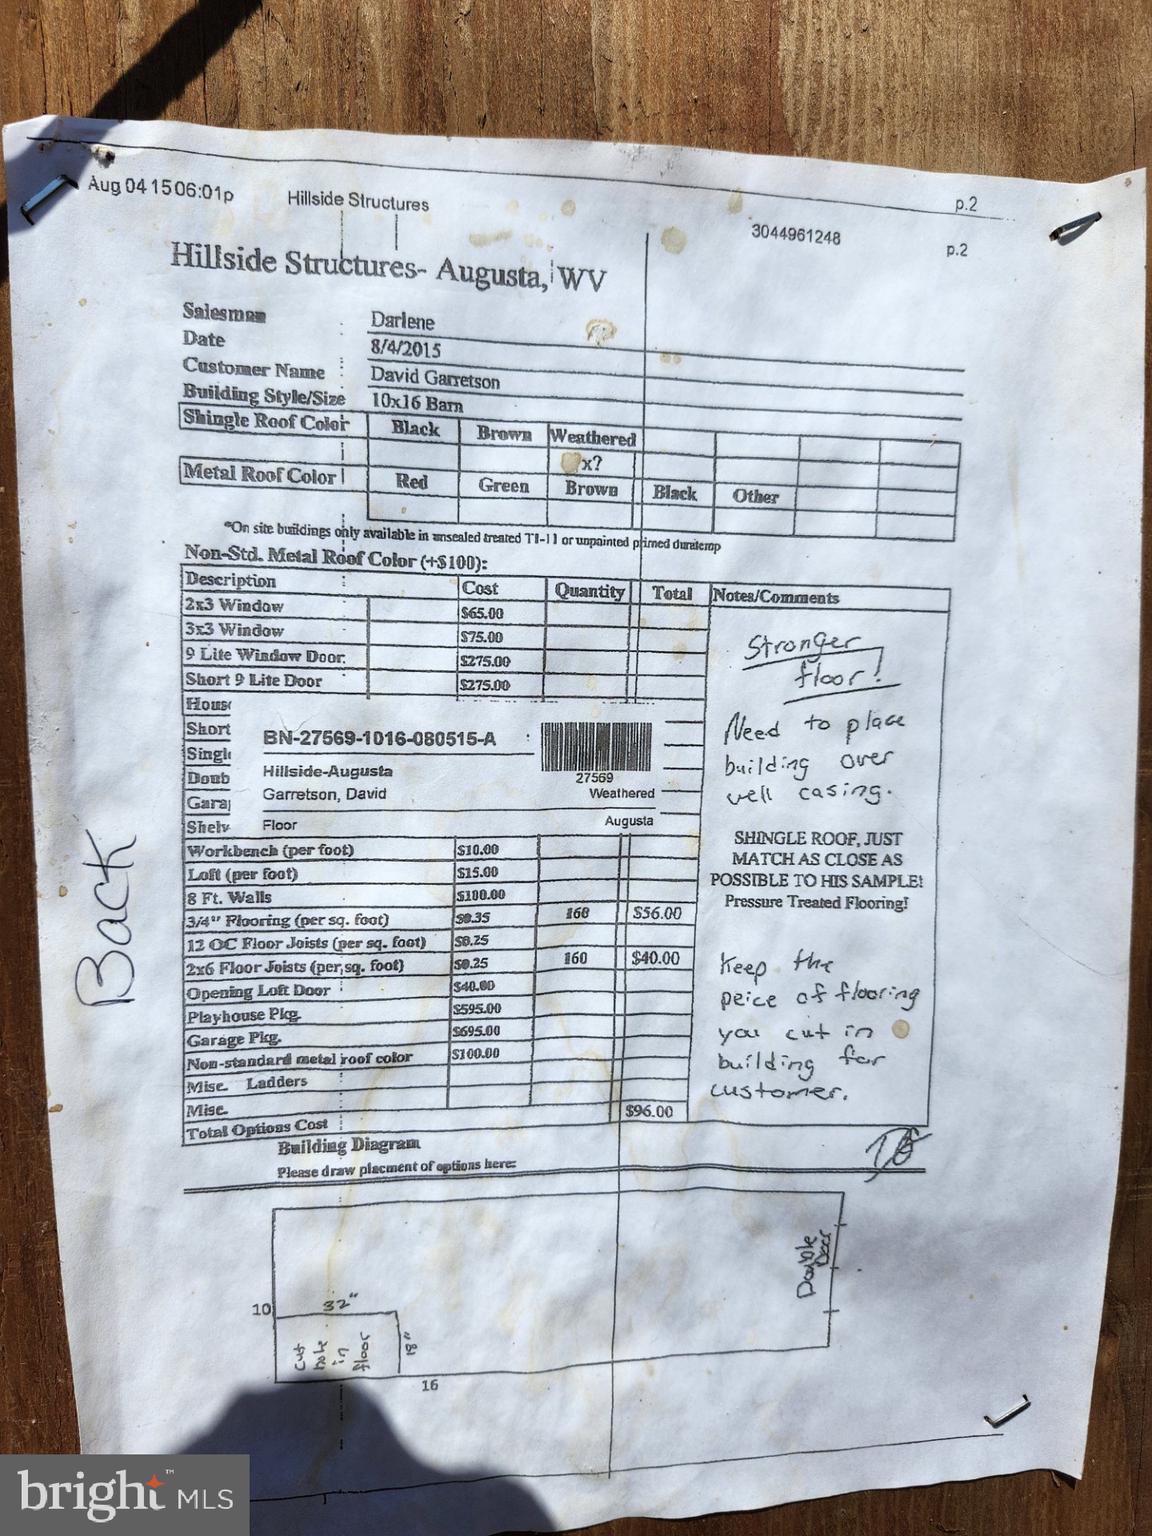 Aug 04 15 06:01p Hillside Structures p.2
3044961248 p.2
Hillside Structures- Augusta, WV
Salesman Darlene
Date 8/4/2015
Customer Name David Garretson
Building Style/Size 10x16 Barn
Shingle Roof Color Black Brown Weathered
x?
Metal Roof Color Red Green Brown Black Other
*On site buildings only available in unsealed treated T1-11 or unpainted primed duratemp
Non-Std. Metal Roof Color (+$100):
Description Cost Quantity Total Notes/Comments
2x3 Window $65.00
3x3 Window $75.00
9 Lite Window Door $275.00
Short 9 Lite Door $275.00
Stronger
floor!
Need to place
building over
well casing.
Hous
Short
Singl
Doub
Gara
Shelv
BN-27569-1016-080515-A
27569
Hillside-Augusta
Garretson, David Weathered
Floor Augusta
Workbench (per foot) $10.00
Loft (per foot) $15.00
8 Ft. Walls $100.00
3/4" Flooring (per sq. foot) $0.35 160 $56.00
12 OC Floor Joists (per sq. foot) $0.25
2x6 Floor Joists (per sq. foot) $0.25 160 $40.00
Opening Loft Door $40.00
Playhouse Pkg. $595.00
Garage Pkg. $695.00
Non-standard metal roof color $100.00
Misc. Ladders
Misc.
Total Options Cost $96.00
SHINGLE ROOF, JUST
MATCH AS CLOSE AS
POSSIBLE TO HIS SAMPLE!
Pressure Treated Flooring!
Keep the
peice of flooring
you cut in
building for
customer.
Building Diagram
Please draw placment of options here:
Back
Double
Door
10
32"
18"
cut
hole
in
floor
16
bright MLS
™